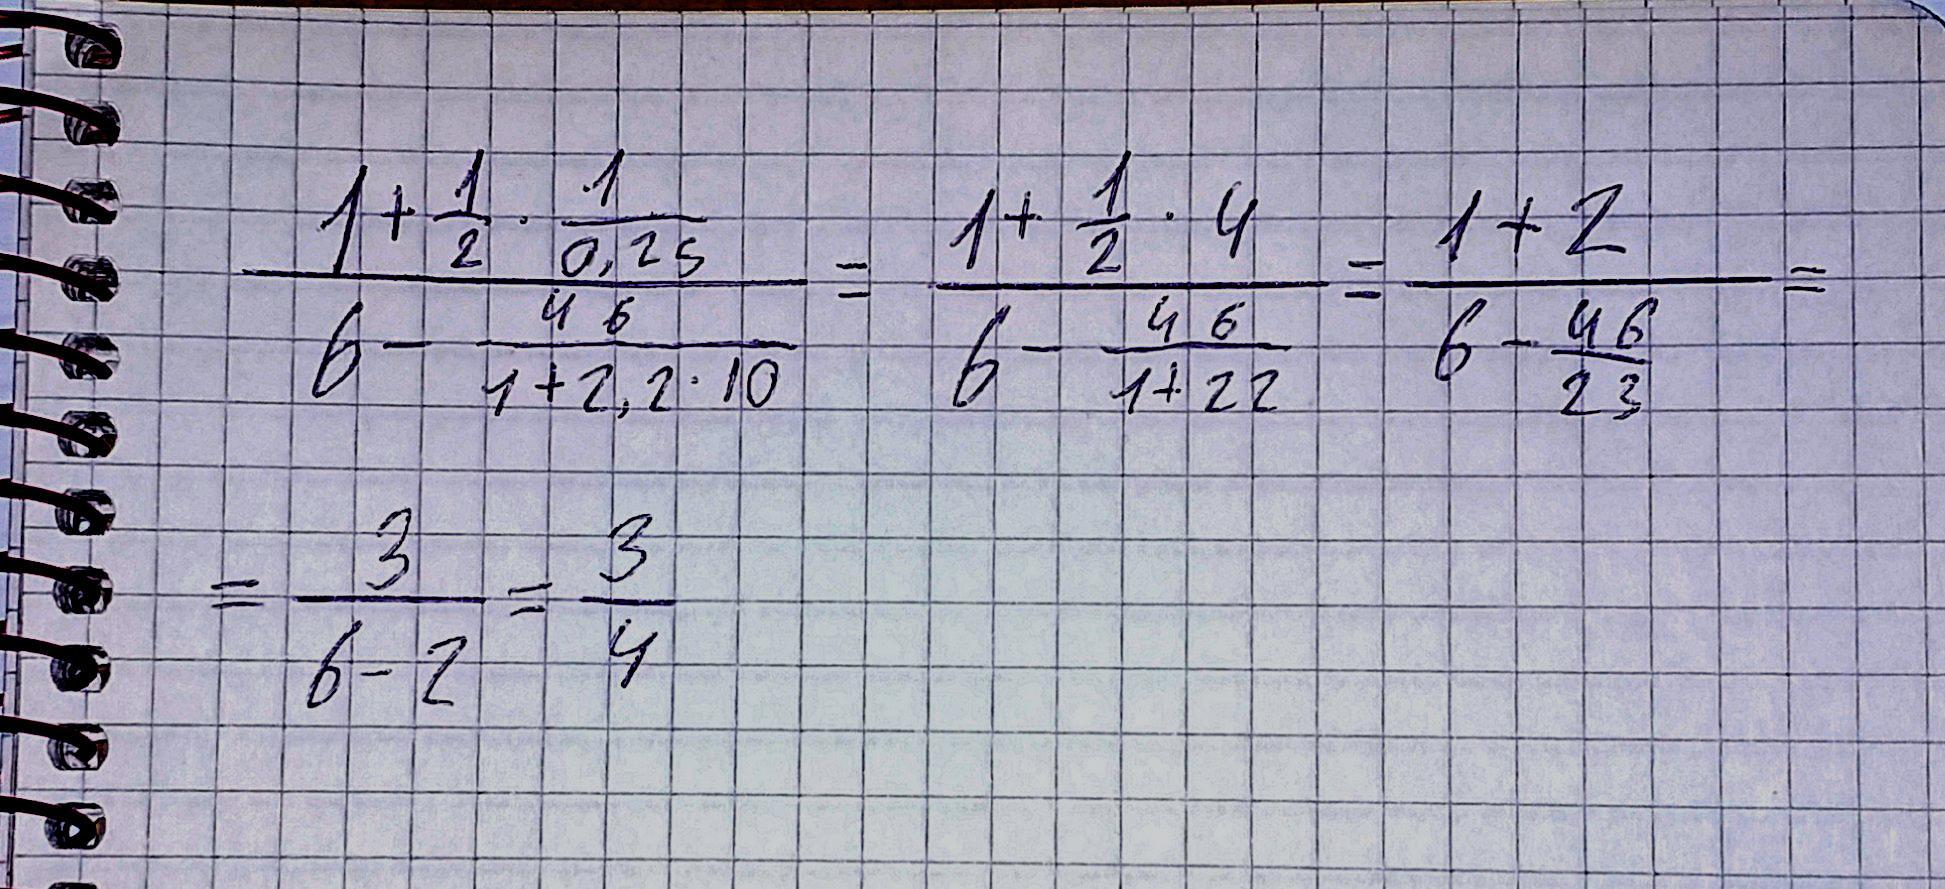 \frac{1+\frac{1}{2}\cdot\frac{1}{0,25}}{6-\frac{46}{1+2,2\cdot10}}=\frac{1+\frac{1}{2}\cdot4}{6-\frac{46}{1+22}}=\frac{1+2}{6-\frac{46}{23}}=
=\frac{3}{6-2}=\frac{3}{4}